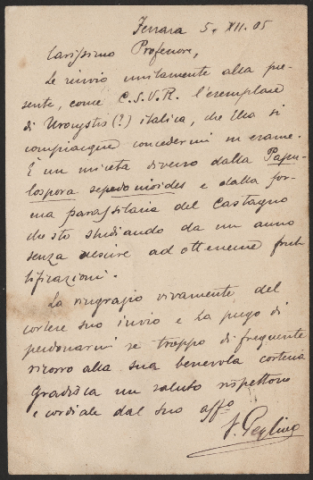 Ferrara 5. XII. 05
Carissimo Professore,
Le rinvio unitamente alla pre-
sente, come C.S.V.R. l'esemplare
di Urocystis(?) italica, che Ella si
compiacque concedermi in esame.
È un micete diverso dalla Papu-
lospora sepedonioides e dalla for-
ma parassitaria del Castagno
che sto studiando da un anno
senza venire ad ottenerne frut-
tificazioni.
La ringrazio vivamente del
cortese suo invio e la prego di
perdonarmi se troppo di frequente
ricorro alla sua benevola cortesia
Gradisca un saluto rispettoso
e cordiale dal suo affo
V. Peglion